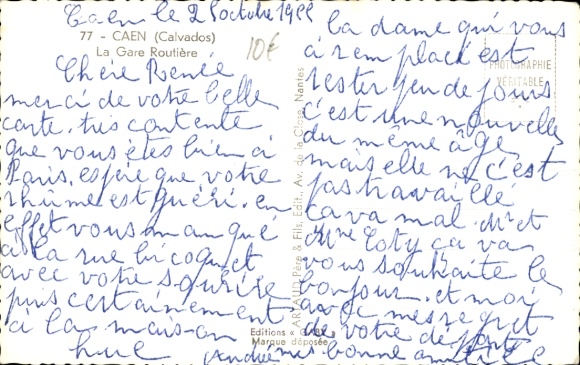 Caen le 2 octobre 19
77 - CAEN (Calvados)
La Gare Routière
10€
Chère Renée
merci de votre belle
carte, très contente
que vous êtes bien à
Paris. espère que votre
rhume est guéri. en
effet vous manqué
à la rue bicoquet
avec votre sourire
puis certainement
à la mais-on
hure
ARTAUD Père & Fils, Edit., Av. de la Close, Nantes
Editions « GABY »
Marque déposée
PHOTOGRAPHIE
VÉRITABLE
la dame qui vous
à remplacé est
rester peu de jours
c'est une nouvelle
du même âge
mais elle ne c'est
pas travaillé
ca va mal. Mr et
Mme Coty ça va
vous souhaite le
bonjour. et moi
avec mes regret
de votre départ
mes bonne amitié
Andrée